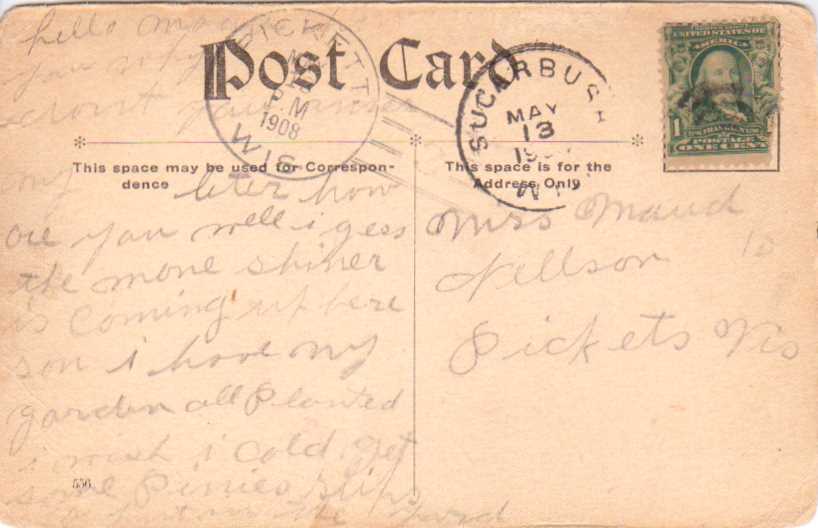 hello
you
dont
Post Card
PICKETT
P.M
1908
WIS
SUGARBUSH
MAY
13
WIS
UNITED STATES OF
AMERICA
1
POSTAGE
ONE CENT
This space may be used for Correspon-
dence
This space is for the
Address Only
my leter how
are you well i gess
the mone shiner
is coming up here
son i have my
garden all Planted
i wish i cold get
some Pinies slips
the yard
Miss Maud
Nellson
Pickets Wis
556